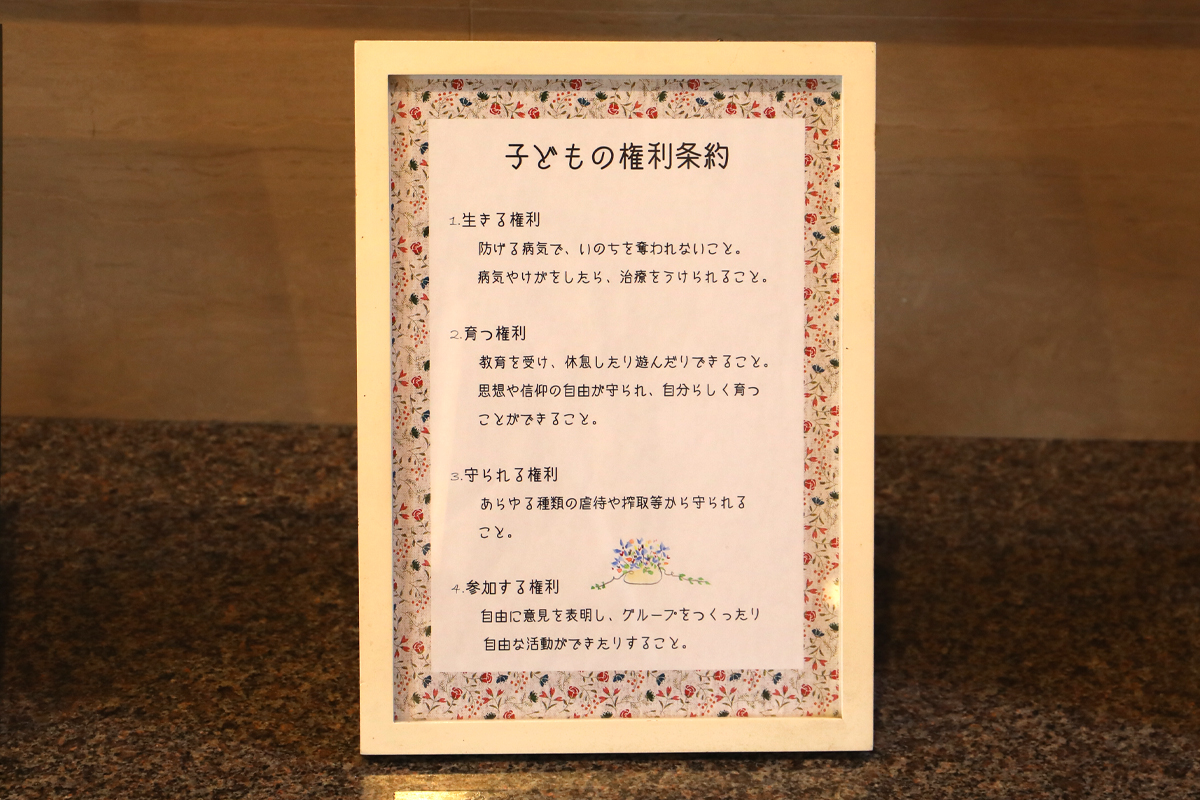 子どもの権利条約
1.生きる権利
防げる病気で、いのちを奪われないこと。
病気やけがをしたら、治療をうけられること。
2.育つ権利
教育を受け、休息したり遊んだりできること。
思想や信仰の自由が守られ、自分らしく育つ
ことができること。
3.守られる権利
あらゆる種類の虐待や搾取等から守られる
こと。
4.参加する権利
自由に意見を表明し、グループをつくったり
自由な活動ができたりすること。